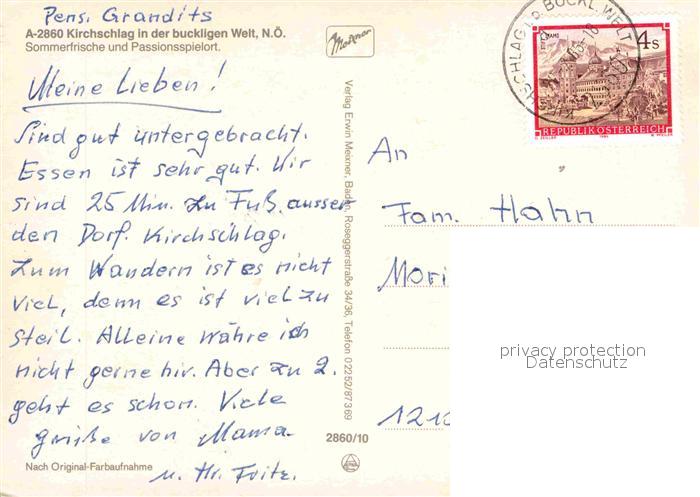 Pens. Grandits
A-2860 Kirchschlag in der buckligen Welt, N.Ö.
Sommerfrische und Passionsspielort.
Meine Lieben!
Sind gut untergebracht.
Essen ist sehr gut. Wir
sind 25 Min. zu Fuß ausser
den Dorf. Kirchschlag.
Zum Wandern ist es nicht
viel, denn es ist viel zu
steil. Alleine währe ich
nicht gerne hir. Aber zu 2.
geht es schon. Viele
grüße von Mama.
u. Hr. Fritz.
Nach Original-Farbaufnahme
2860/10
Verlag Erwin Meixner, Baden, Roseggerstraße 34/36, Telefon 02252/87369
Meixner
BUCKL. WELT
4s
REPUBLIK ÖSTERREICH
An
Fam. Hahn
Mori
1210
privacy protection
Datenschutz